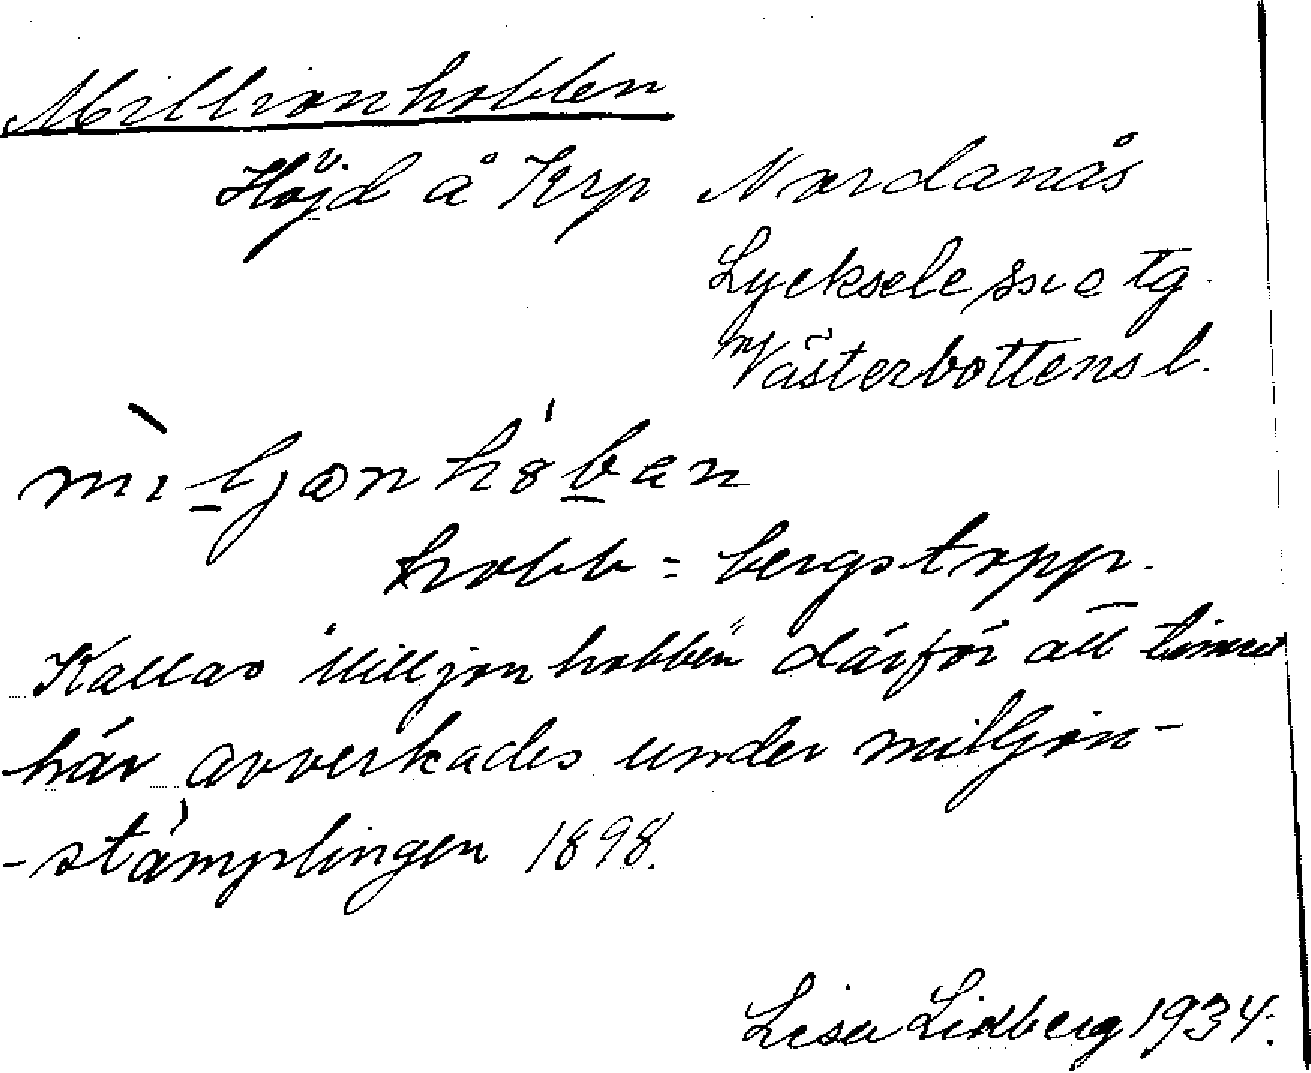 Millionhobben
Höjd å Krp Nordanås
Lycksele sn o tg.
Västerbottens l.
mìljonhɵban
hobb = bergstopp.
Kallas Miljonhobben därför att timret
här avverkades under miljon-
-stämplingen 1898.
Lisa Lidberg 1934.